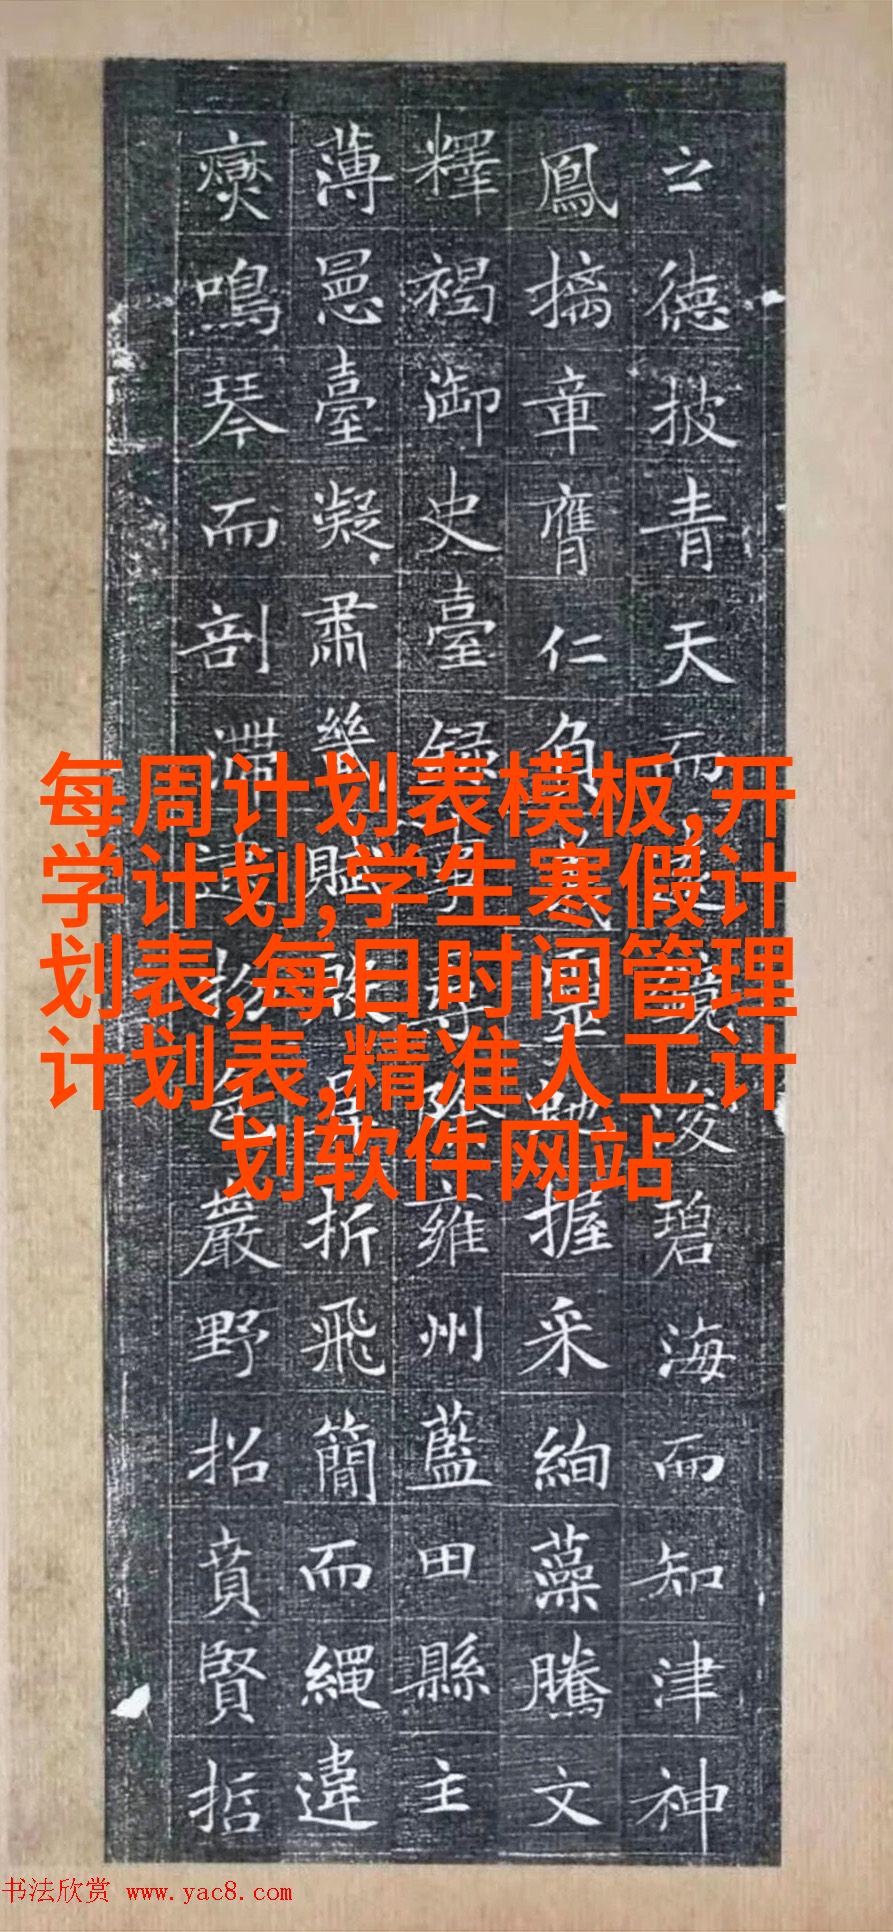 之德披青天而鏡浚碧海而知津神
鳳摛章膺仁負握采絢藻騰文
釋褐御史臺録事尋除雍州藍田縣主
薄邑臺凝肅賦折飛簡而繩違
鳴琴而剖滯巖野招賁賢哲
每周计划表模板,开
学计划,学生寒假计
划表,每日时间管理
计划表,精准人工计
划软件网站
书法欣赏 www.yac8.com